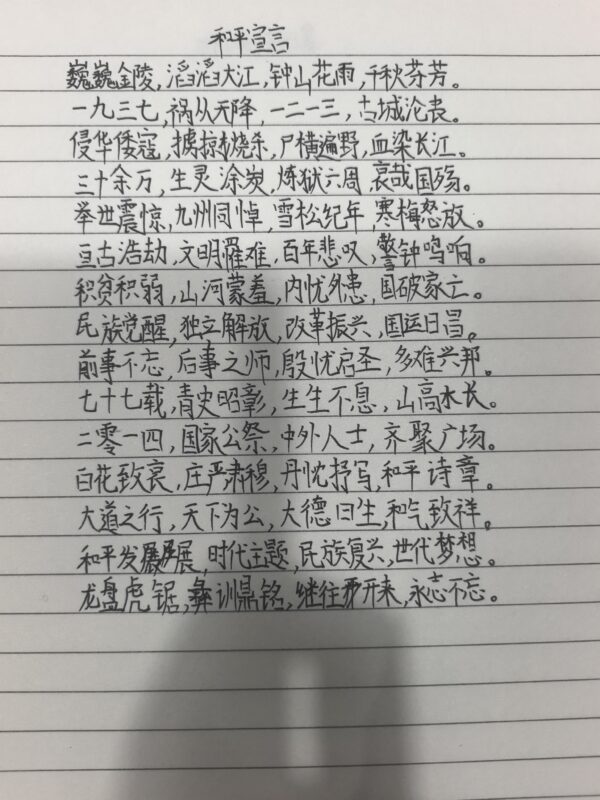 和平宣言
巍巍金陵,滔滔大江,钟山花雨,千秋芬芳。
一九三七,祸从天降,一二一三,古城沦丧。
侵华倭寇,掳掠烧杀,尸横遍野,血染长江。
三十余万,生灵涂炭,炼狱六周,哀哉国殇。
举世震惊,九州同悼,雪松纪年,寒梅怒放。
亘古浩劫,文明罹难,百年悲叹,警钟鸣响。
积贫积弱,山河蒙羞,内忧外患,国破家亡。
民族觉醒,独立解放,改革振兴,国运日昌。
前事不忘,后事之师,殷忧启圣,多难兴邦。
七十七载,青史昭彰,生生不息,山高水长。
二零一四,国家公祭,中外人士,齐聚广场。
白花致哀,庄严肃穆,丹忱抒写,和平诗章。
大道之行,天下为公,大德曰生,和气致祥。
和平发展,时代主题,民族复兴,世代梦想。
龙盘虎锯,彝训鼎铭,继往开来,永志不忘。